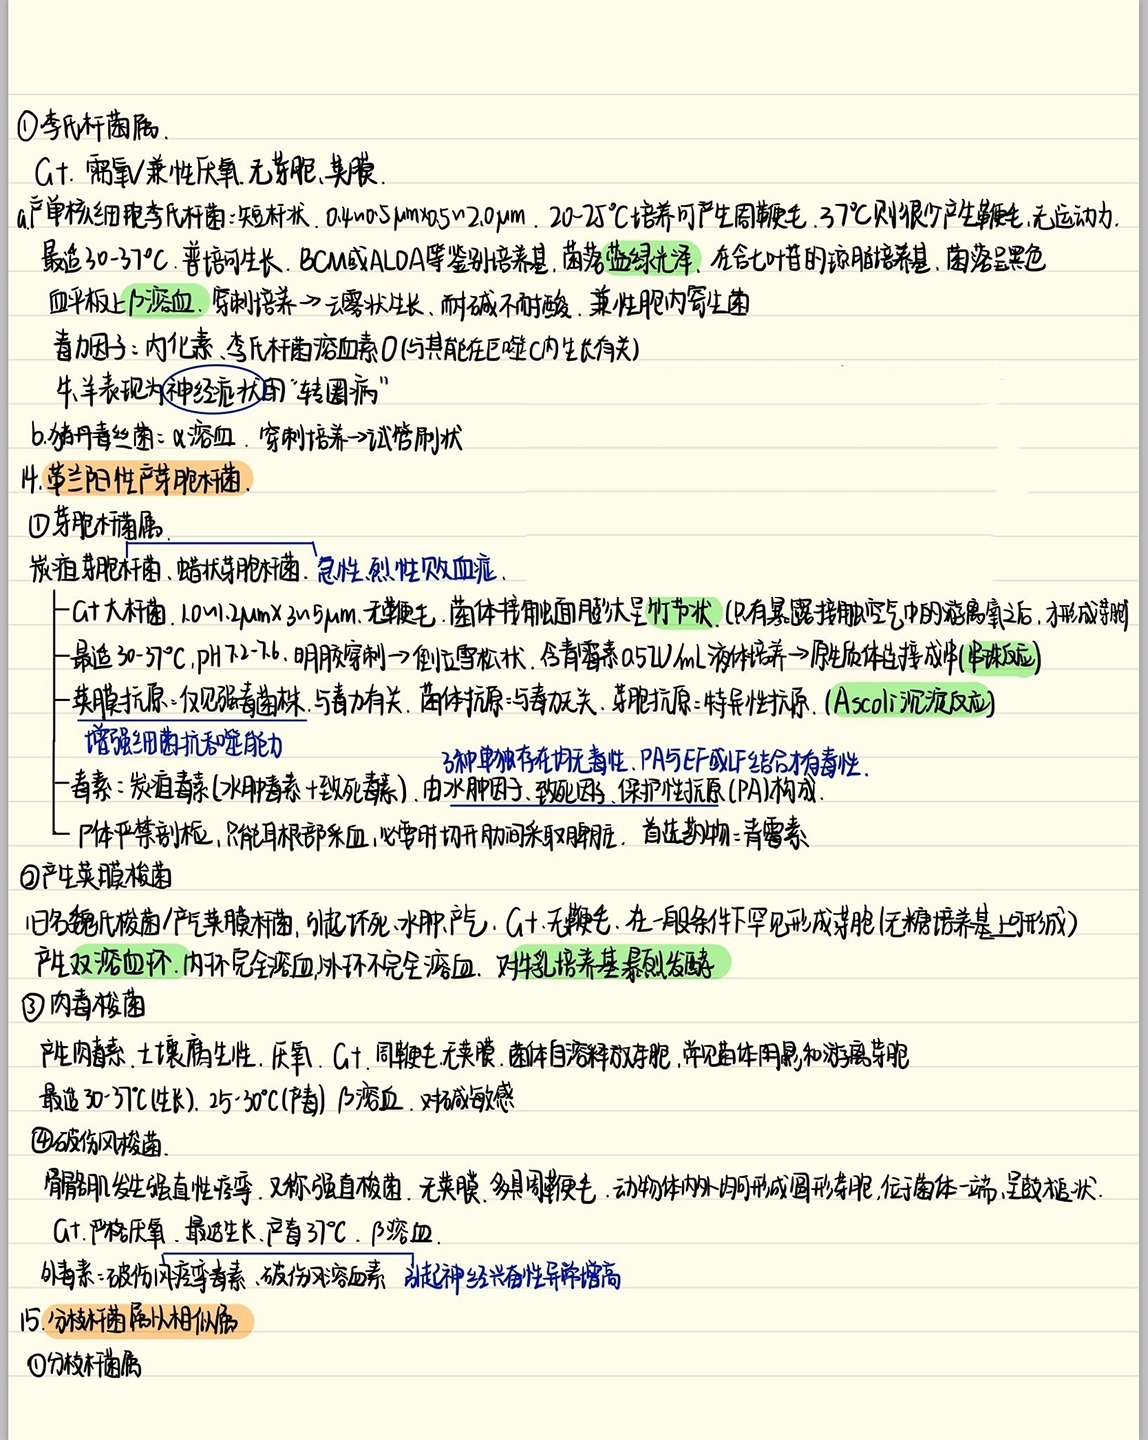 ①李氏杆菌属.
G+. 需氧/兼性厌氧. 无芽胞、荚膜.
a.产单核细胞李氏杆菌:短杆状. 0.4~0.5μm×0.5~2.0μm. 20-25℃培养可产生周鞭毛, 37℃则很少产生鞭毛, 无运动力.
最适30-37℃. 普培可生长. BCM或ALOA等鉴别培养基, 菌落蓝绿光泽. 在含七叶苷的琼脂培养基, 菌落呈黑色
血平板上β溶血. 穿刺培养→云雾状生长、耐碱不耐酸. 兼性胞内寄生菌
毒力因子:内化素、李氏杆菌溶血素O(与其能在巨噬C内生长有关)
牛、羊表现为神经症状的“转圈病”
b.猪丹毒丝菌:α溶血. 穿刺培养→试管刷状
14.革兰阳性产芽胞杆菌.
①芽胞杆菌属.
炭疽芽胞杆菌、蜡状芽胞杆菌. 急性、烈性败血症.
G+大杆菌. 1.0~1.2μm×3~5μm. 无鞭毛. 菌体接触面膨大呈竹节状. (只有暴露接触空气中的游离氧之后, 才形成芽胞)
最适30-37℃, pH7.2-7.6. 明胶穿刺→倒立雪松状. 含青霉素0.5IU/mL液体培养→原生质体连接成串(串珠反应)
荚膜抗原:仅见强毒菌株. 与毒力有关. 菌体抗原:与毒力无关. 芽胞抗原:特异性抗原. (Ascoli沉淀反应)
增强细菌抗吞噬能力
3种单独存在均无毒性. PA与EF或LF结合才有毒性.
毒素:炭疽毒素(水肿毒素+致死毒素). 由水肿因子、致死因子、保护性抗原(PA)构成.
尸体严禁剖检, 只能耳根部采血, 必要时切开肋间采取脾脏. 首选药物:青霉素
②产生荚膜梭菌
旧名魏氏梭菌/产气荚膜杆菌, 引起坏死、水肿、产气. G+. 无鞭毛. 在一般条件下罕见形成芽胞(无糖培养基上可形成)
产生双溶血环. 内环完全溶血, 外环不完全溶血. 对牛乳培养基暴烈发酵
③肉毒梭菌
产生肉毒素. 土壤腐生性. 厌氧. G+. 周鞭毛. 无荚膜. 菌体自溶释放芽胞, 常见菌体阴影和游离芽胞
最适30-37℃(生长). 25-30℃(产毒) β溶血. 对碱敏感
④破伤风梭菌.
骨骼肌发生强直性痉挛. 又称强直梭菌. 无荚膜. 多具周鞭毛. 动物体内外均可形成圆形芽胞, 位于菌体一端, 呈鼓槌状.
G+. 严格厌氧. 最适生长、产毒37℃. β溶血.
外毒素:破伤风痉挛毒素、破伤风溶血素 引起神经兴奋性异常增高
15.分枝杆菌属以相似属
①分枝杆菌属